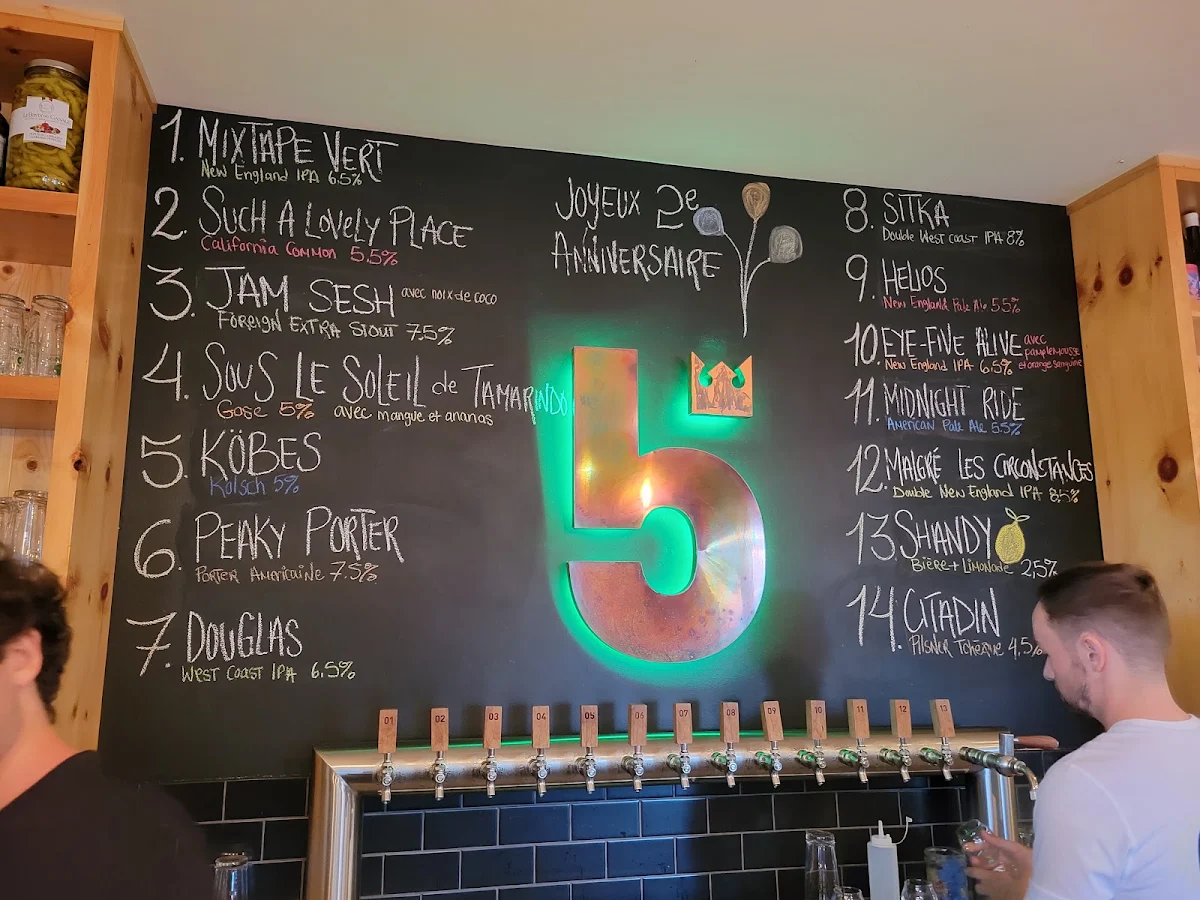 1. MIXTAPE VERT
New England IPA 6.5%
2. SUCH A LOVELY PLACE
California Common 5.5%
3. JAM SESH avec noix de coco
FOREIGN EXTRA STOUT 7.5%
4. SOUS LE SOLEIL de TAMARINDO
Gose 5% avec mangue et ananas
5. KÖBES
Kolsch 5%
6. PEAKY PORTER
PORTER AMERICAINE 7.5%
7. DOUGLAS
WEST COAST IPA 6,5%
JOYEUX 2e
ANNIVERSAIRE
5
8. SITKA
Double West coast IPA 8%
9. HELIOS
New England Pale Ale 5.5%
10. EYE-FIVE ALIVE avec
pamplemousse
New England IPA 6.5% et orange sanguine
11. MIDNIGHT RIDE
American Pale Ale 5.5%
12. MALGRÉ LES CIRCONSTANCES
Double New England IPA 8,5%
13 SHANDY
BIÈRE + LIMONADE 2,5%
14. CITADIN
PILSNER TCHÈQUE 4,5%
01 02 03 04 05 06 07 08 09 10 11 12 13